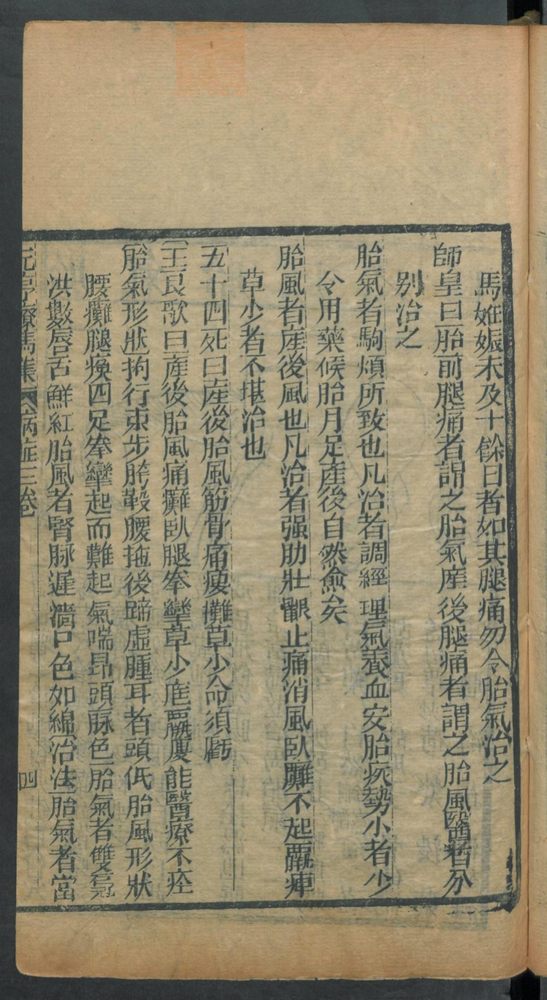 馬妊娠未及十餘日者如其腿痛勿令胎氣治之
師皇曰胎前腿痛者謂之胎氣産後腿痛者謂之胎風醫者分
别治之
胎氣者駒煩所致也凡治者調經理氣養血安胎疾勢小者少
令用藥候胎月足産後自然愈矣
胎風者産後風也凡治者强肋壯腰止痛消風臥難不起羸瘦
草少者不堪治也
五十四死曰産後胎風筋骨痛瘦攤草少命須虧
王良歌曰産後胎風痛攤臥腿牽攣草少尫羸瘦能醫療不痊
胎氣形狀拘行束步胯靸腰拖後蹄虛腫耳耷頭低胎風形狀
腰癱腿瘓四足牽攣起而難起氣喘昂頭脉色胎氣者雙鳧
洪數唇舌鮮紅胎風者腎脉遲濇口色如綿治法胎氣者當
元亨療馬集 病症三卷 四